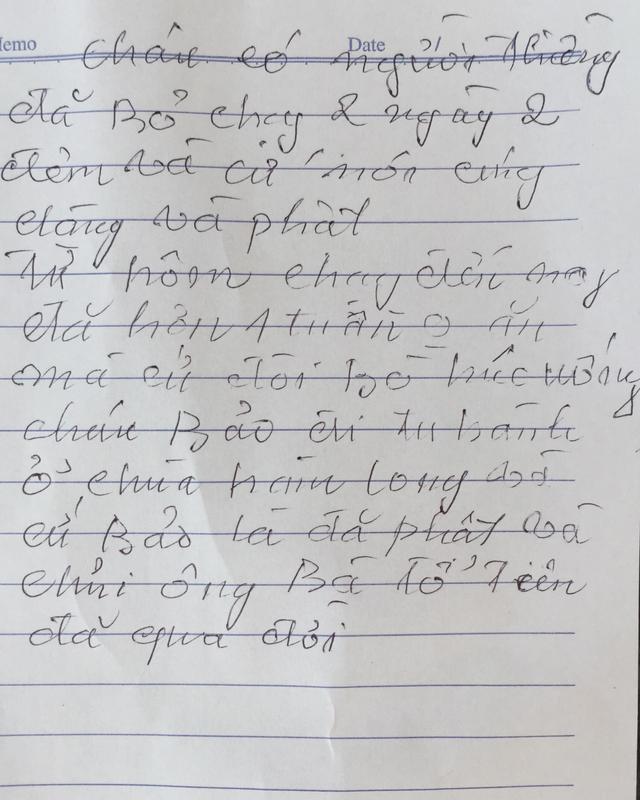 Memo Date
cháu có người thường
đã Bỏ chạy 2 ngày 2
đêm và cứ nôn cúng
đảng và phật
Từ hôm chạy đến nay
đã hơn 1 tuần o ăn
mà cứ đòi bỏ húc uống
cháu Bảo đi tu hành
ở chùa hàm long và
cứ Bảo là đã phật và
chửi ông Bà Tổ Tiên
đã qua đời